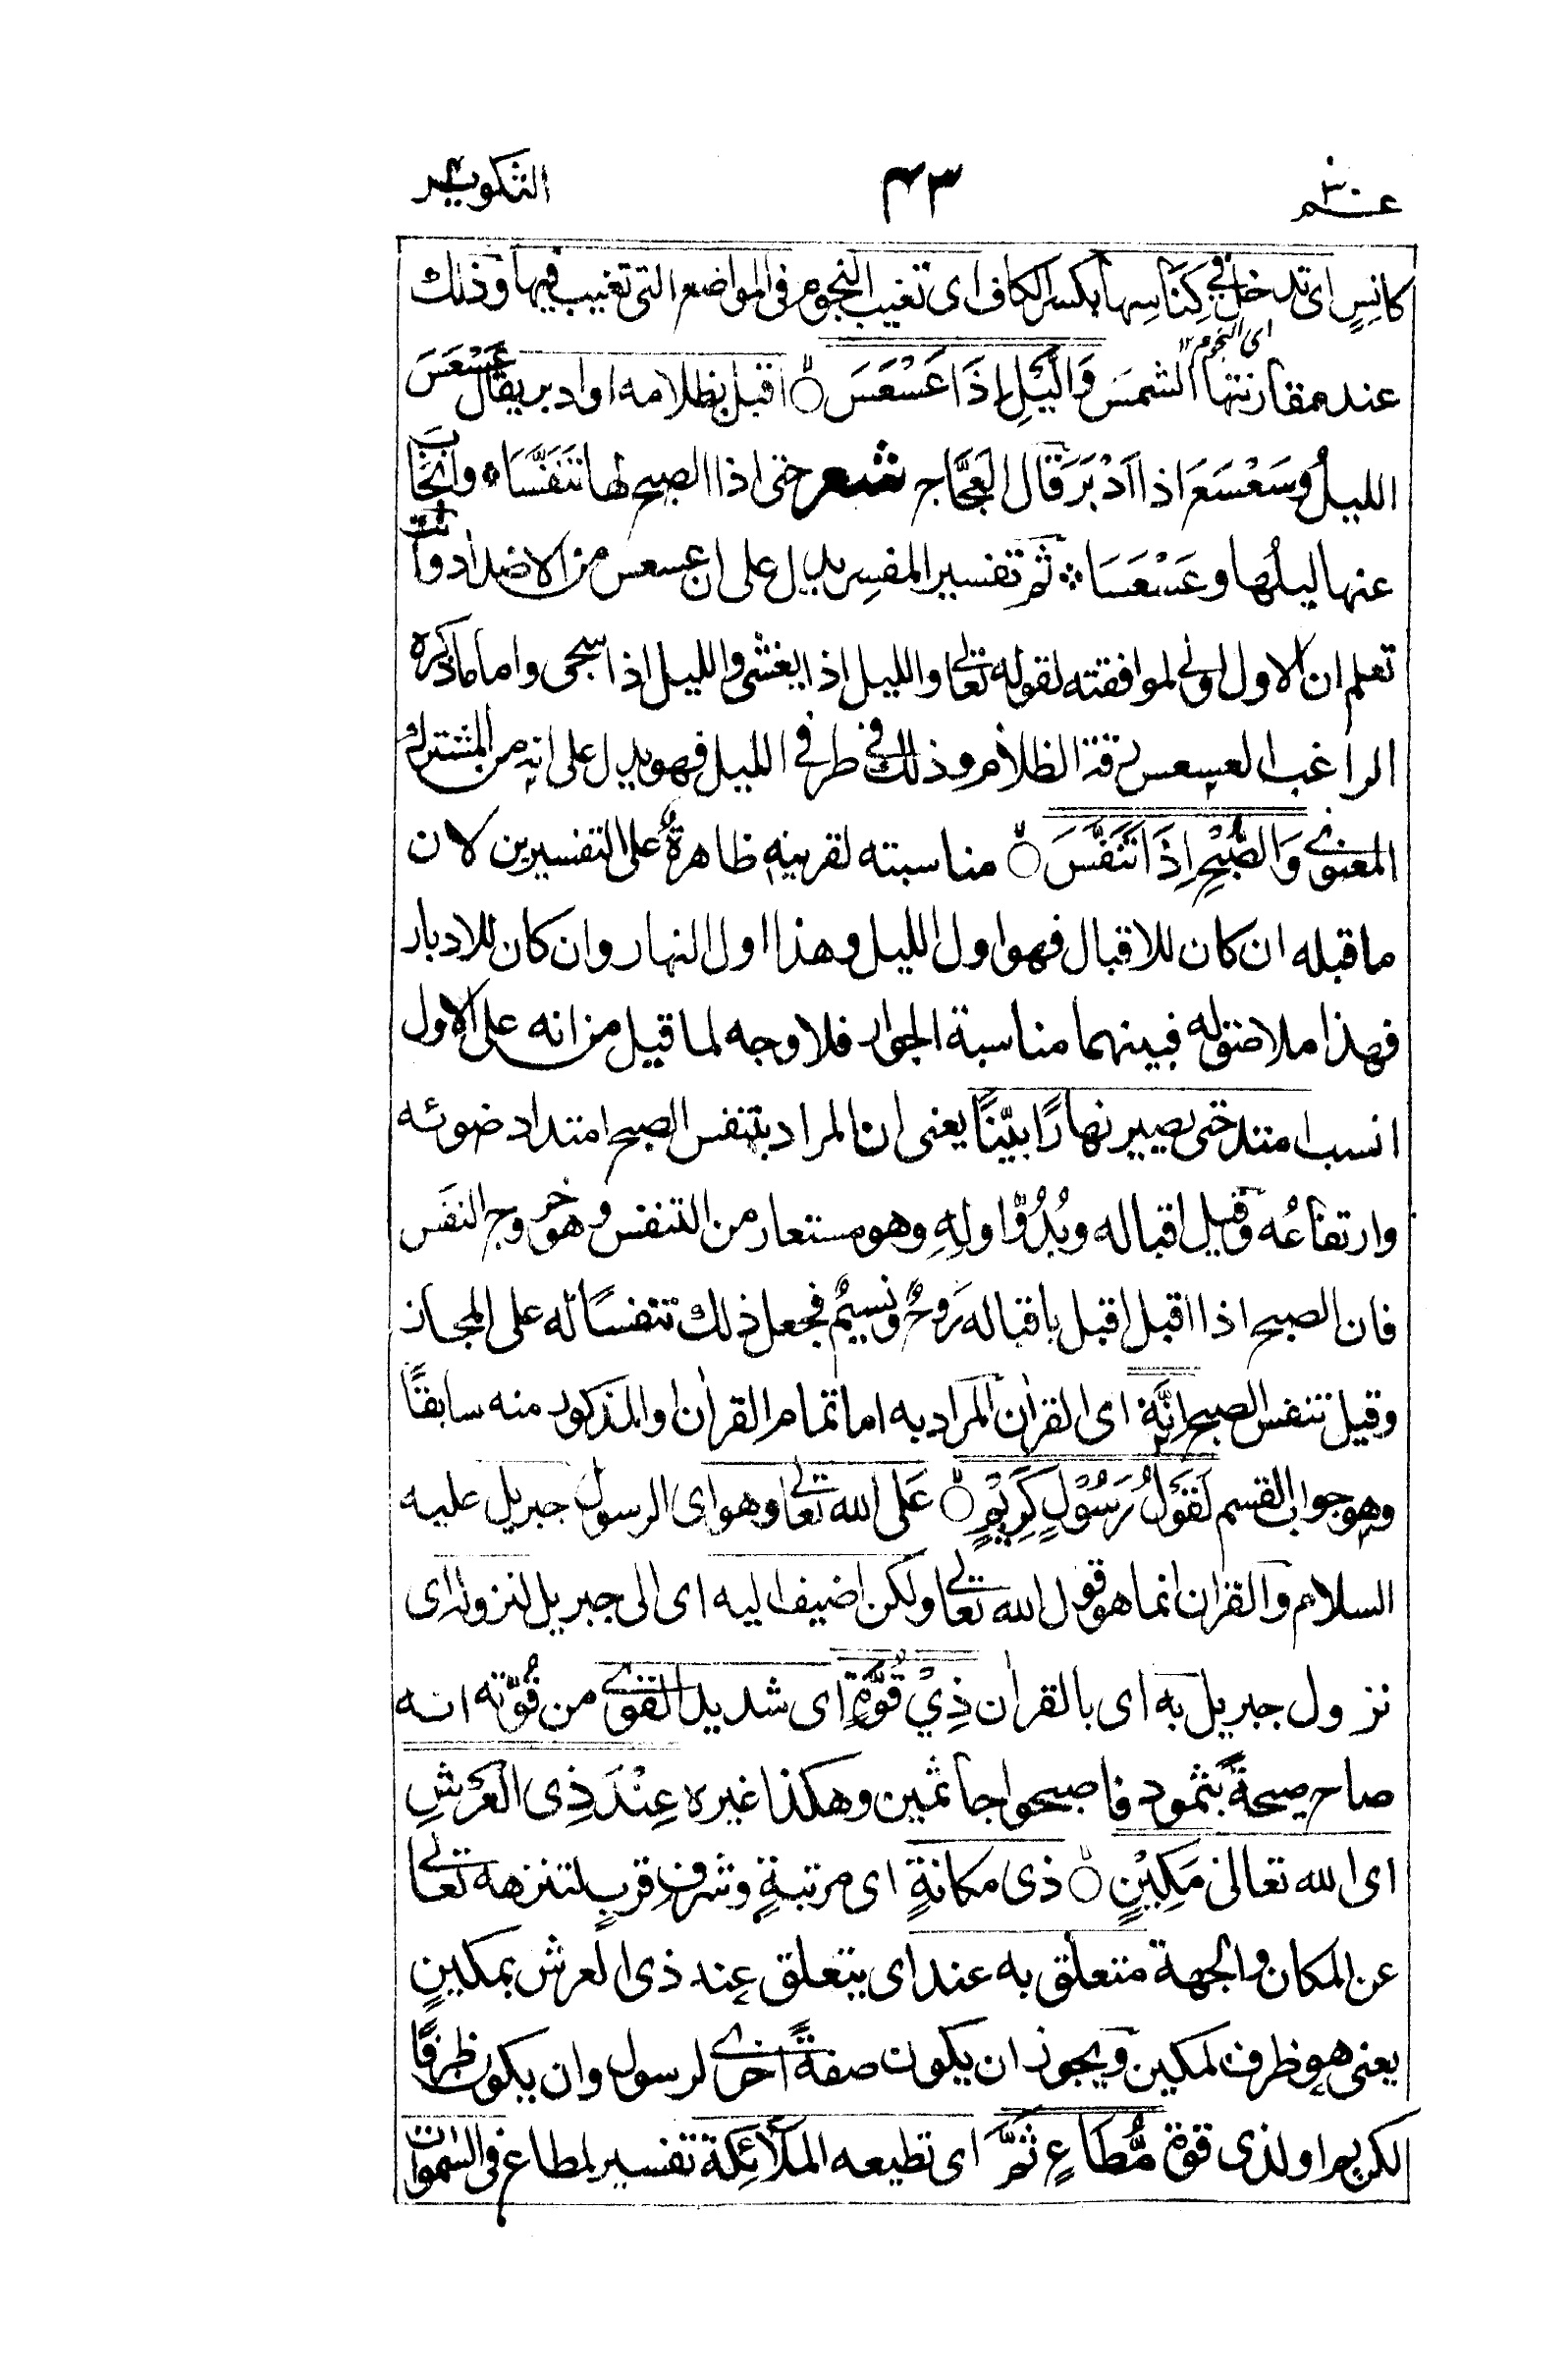 عم ٣٠
٤٣
التكوير
كانِسٍ اى تدخل فى كِنَاسِها بكسر الكاف اى تغيب النجوم فى المواضع التى تغيب فيها وذلك
اى النجوم ١٢
عند مقارنتها الشمسَ وَالَّيْلِ اِذَا عَسْعَسَ اقبل بظلامه او ادبر يقال عَسْعَسَ
الليلُ وسَعْسَعَ اذا اَدْبَرَ قال العَجَّاج شعر حتى اذا الصبح لها تَنَفَّسَا ۞ وانجَابَ
عنها ليلُها وعَسْعَسَا ۞ ثم تفسير المفسِر يدل على ان عسعس من الاضداد وانت
تعلم ان الاول اولى لموافقته لقوله تعالى والليل اذا يغشى والليل اذا سجى واما ما ذكره
الراغب العسعس رقة الظلام وذلك فى طرفى الليل فهو يدل على انه من المشترك
المعنوى وَالصُّبْحِ اِذَا تَنَفَّسَ مناسبته لقرينه ظاهرةٌ على التفسيرين لان
ما قبله ان كان للاقبال فهو اول الليل وهذا اول النهار وان كان للادبار
فهذا ملاصق له فبينهما مناسبة الجوار فلا وجه لما قيل من انه على الاول
انسب امتد حتى يصير نهارًا بيّنًا يعنى ان المراد بتنفس الصبح امتداد ضوئه
وارتفاعُه وقيل اقباله وبُدُوّ اولِهِ وهو مستعار من التنفس وهو خروج النفَس
فان الصبح اذا اقبل اقبل باقباله رَوحٌ ونسيمٌ فجعل ذلك تنفسًا له على المجاز
وقيل تنفس الصبح اِنَّهٗ اى القرآن المراد به اما تمام القرآن او المذكور منه سابقًا
وهو جواب القسم لَقَوْلُ رَسُوْلٍ كَرِيْمٍ عَلى الله تعالى وهو اى الرسول جبريل عليه
السلام والقرآن انما هو قول الله تعالى ولكن اضيف اليه اى الى جبريل لنزوله اى
نزول جبريل به اى بالقرآن ذِيْ قُوَّةٍ اى شديد القوى من قُوّته انه
صاح صيحةً بثمود فاصبحوا جاثمين وهكذا غيره عِنْدَ ذِى الْعَرْشِ
اى الله تعالى مَكِيْنٍ ذى مكانةٍ اى مرتبةٍ وشرفٍ قربٍ لتنزهه تعالى
عن المكان والجهة متعلق به عند اى يتعلق عند ذى العرش بمكينٍ
يعنى هو ظرف لمكين ويجوز ان يكون صفةً اخرى لرسول وان يكون ظرفًا
لكريم او لذى قوة مُّطَاعٍ ثَمَّ اى تطيعه الملآئكة تفسير لمطاع فى السموات